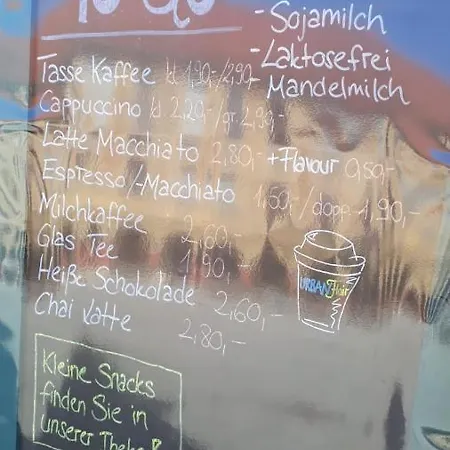 To Go
- Sojamilch
- Laktosefrei
- Mandelmilch
Tasse Kaffee kl. 1,90-/2,90-
Cappuccino kl. 2,20-/gr. 2,90-
Latte Macchiato 2,80,- + Flavour 0,50,-
Espresso/-Macchiato 1,50,-/dopp. 1,90,-
Milchkaffee 2,60,-
Glas Tee 1,90,-
Heiße Schokolade 2,60,-
Chai Latte 2,80,-
URBAN Flair
Kleine Snacks
finden Sie in
unserer Theke!